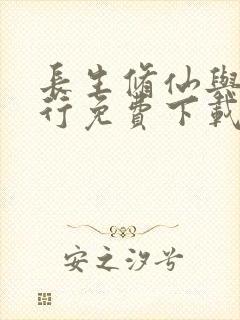 長生脩仙與
行免費下載
安之汐兮